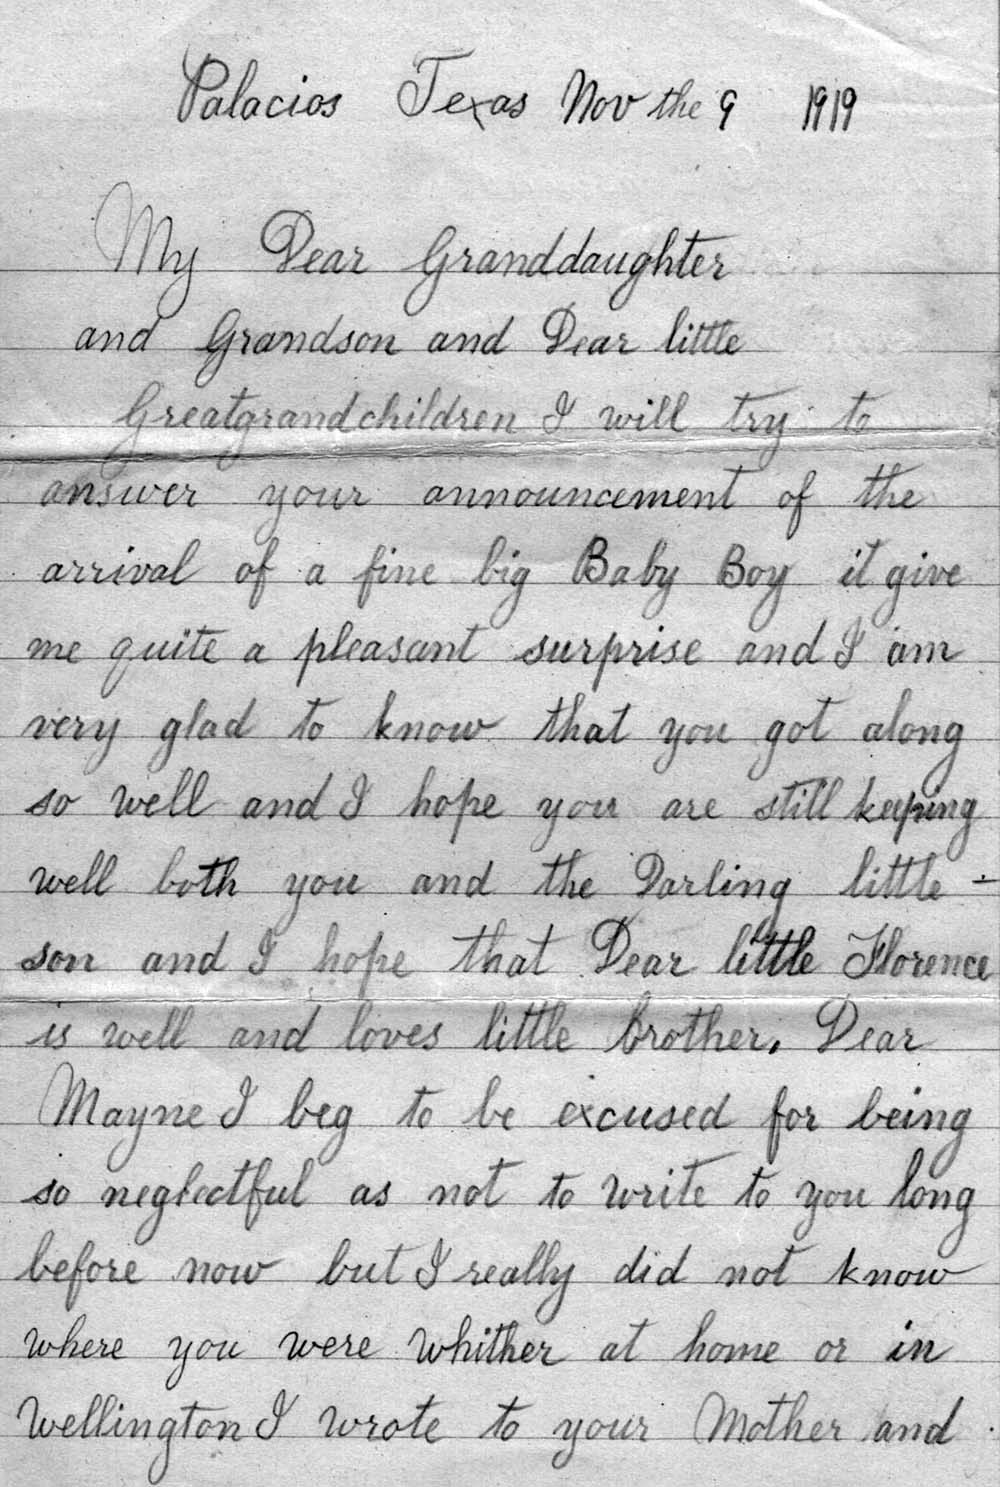 Palacios Texas Nov the 9 1919
My Dear Granddaughter
and Grandson and Dear little
Greatgrandchildren I will try to
answer your announcement of the
arrival of a fine big Baby Boy it give
me quite a pleasant surprise and I am
very glad to know that you got along
so well and I hope you are still keeping
well both you and the Darling little -
son and I hope that Dear little Florence
is well and loves little brother. Dear
Mayne I beg to be excused for being
so neglectful as not to write to you long
before now but I really did not know
where you were whither at home or in
Wellington I wrote to your Mother and